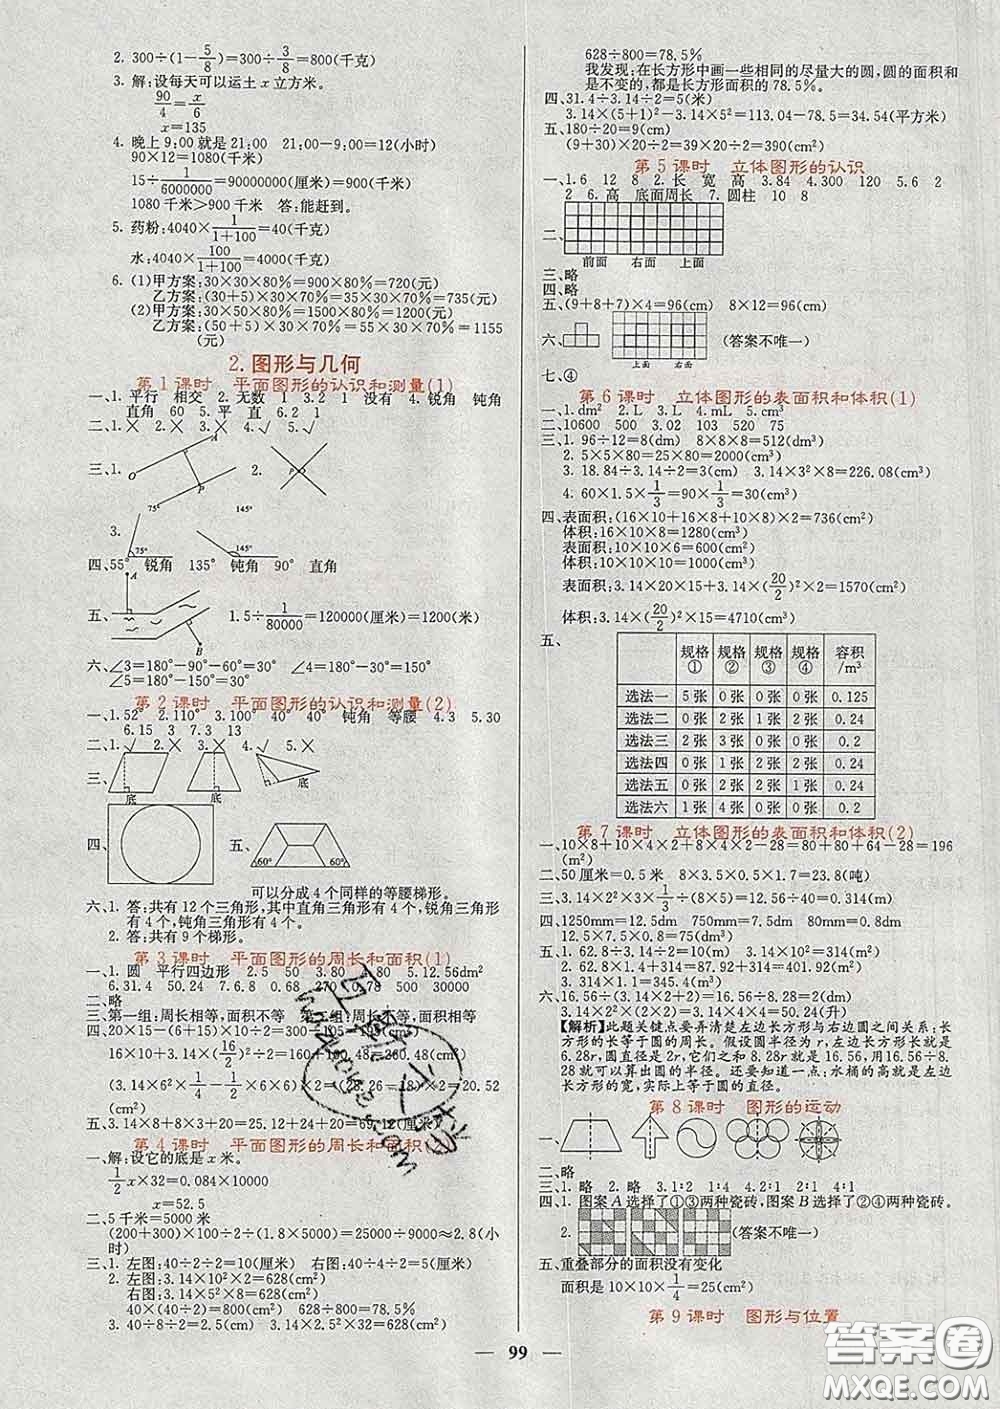 2. 300÷(1－5/8)＝300÷3/8＝800(千克)
3. 解:设每天可以运土 x 立方米.
90/4＝x/6
x＝135
4. 晚上 9:00 就是 21:00　21:00－9:00＝12(小时)
90×12＝1080(千米)
15÷1/6000000＝90000000(厘米)＝900(千米)
1080 千米＞900 千米　答:能赶到.
5. 药粉:4040×1/(1+100)＝40(千克)
水:4040×100/(1+100)＝4000(千克)
6. (1)甲方案:30×30×80％＝900×80％＝720(元)
乙方案:(30＋5)×30×70％＝35×30×70％＝735(元)
(2)甲方案:30×50×80％＝1500×80％＝1200(元)
乙方案:(50＋5)×30×70％＝55×30×70％＝1155
(元)
2. 图形与几何
第 1 课时　平面图形的认识和测量(1)
一、1. 平行　相交　2. 无数　1　3. 2　1　没有　4. 锐角　钝角
直角　60　5. 平　直　6. 2　1
二、1. ×　2. ×　3. ×　4. √　5. √
三、1.　A　O　P　2.　P
75°　145°
3.　75°　145°
四、55°　锐角　135°　钝角　90°　直角
A
五、　1.5÷1/80000＝120000(厘米)＝1200(米)
B
六、∠3＝180°－90°－60°＝30°　∠4＝180°－30°＝150°
∠5＝180°－150°＝30°
第 2 课时　平面图形的认识和测量(2)
一、1. 52°　2. 110°　3. 100°　40°　40°　钝角　等腰　4. 3　5. 30
6. 15　3　7. 3　13
二、1. √　2. ×　3. ×　4. √　5. ×
三、　底　底　底
四、　五、　60°　60°
可以分成 4 个同样的等腰梯形.
六、1. 答:共有 12 个三角形,其中直角三角形有 4 个,锐角三角形
有 4 个,钝角三角形有 4 个.
2. 答:共有 9 个梯形.
第 3 课时　平面图形的周长和面积(1)
一、1. 圆　平行四边形　2. 5　50　3. 80　4. 80　5. 12.56dm
6. 31.4　50.24　7. 6.8　0.68　270　0.78　500　30000
二、略
三、第一组:周长相等,面积不等　第二组:周长不等,面积相等
四、20×15－(6＋15)×10÷2＝300－105＝195(cm²)
16×10＋3.14×(16/2)²÷2＝160＋100.48＝260.48(cm²)
(3.14×6²×1/4－1/2×6×6)×2＝(28.26－18)×2＝20.52
(cm²)
五、3.14×8＋3×8÷2＝25.12＋24＋20＝69.12(厘米)
第 4 课时　平面图形的周长和面积
一、解:设它的底是 x 米.
1/2 x×32＝0.084×10000
x＝52.5
二、5 千米＝5000 米
(200＋300)×100÷2÷(1.8×5000)＝25000÷9000≈2.8(小
时)
三、1. 左图:40÷2÷2＝10(厘米)　右图:40÷4÷2＝5(厘米)
2. 左图:3.14×10²×2＝628(cm²)
右图:3.14×5²×8＝628(cm²)
40×(40÷2)＝800(cm²)　628÷800＝78.5％
3. 40÷8÷2＝2.5(cm)　3.14×2.5²×32＝628(cm²)
628÷800＝78.5％
我发现:在长方形中画一些相同的尽量大的圆,圆的面积和
是不变的,都是长方形面积的 78.5％.
四、31.4÷3.14÷2＝5(米)
3.14×(5＋1)²－3.14×5²＝113.04－78.5＝34.54(平方米)
五、180÷20＝9(cm)
(9＋30)×20÷2＝39×20÷2＝390(cm²)
第 5 课时　立体图形的认识
一、1. 6　12　8　2. 长　宽　高　3. 84　4. 300　120　5. 6　2
2　6. 高　底面周长　7. 圆柱　10　8
二、
前面　右面　上面
三、略
四、略
五、(9＋8＋7)×4＝96(cm)　8×12＝96(cm)
六、　上面　右面　(答案不唯一)
七、④
第 6 课时　立体图形的表面积和体积(1)
一、1. dm²　2. L　3. L　4. mL　5. cm³
二、10600　500　3.02　103　520　75
三、1. 96÷12＝8(dm)　8×8×8＝512(dm³)
2. 5×5×80＝25×80＝2000(cm³)
3. 18.84÷3.14÷2＝3(cm)　3.14×3²×8＝226.08(cm³)
4. 60×1.5×1/3＝90×1/3＝30(cm³)
四、表面积:(16×10＋16×8＋10×8)×2＝736(cm²)
体积:16×10×8＝1280(cm³)
表面积:10×10×6＝600(cm²)
体积:10×10×10＝1000(cm³)
表面积:3.14×20×15＋3.14×(20/2)²×2＝1570(cm²)
体积:3.14×(20/2)²×15＝4710(cm³)
五、
规格①　规格②　规格③　规格④　容积/m³
选法一　5 张　0 张　0 张　0 张　0.125
选法二　0 张　2 张　1 张　2 张　0.24
选法三　2 张　3 张　0 张　0 张　0.2
选法四　0 张　1 张　2 张　2 张　0.24
选法五　0 张　2 张　2 张　1 张　0.24
选法六　1 张　4 张　0 张　0 张　0.2
第 7 课时　立体图形的表面积和体积(2)
一、10×8＋10×4×2＋8×4×2－28＝80＋80＋64－28＝196
(m²)
二、50 厘米＝0.5 米　8×3.5×0.5×1.7＝23.8(吨)
三、3.14×2²×3×1/3÷(5×8)＝12.56÷40＝0.314(m)
四、1250mm＝12.5dm　750mm＝7.5dm　80mm＝0.8dm
12.5×7.5×0.8＝75(dm³)
五、1. 62.8÷3.14÷2＝10(m)　3.14×10²＝314(m²)
2. 62.8×3＋3.14×10²＝188.4＋314＝502.4(m²)
3. 314×1.1＝345.4(m³)
六、16.56÷(3.14×2＋2)＝16.56÷8.28＝2(dm)
3.14×2²×(2×2)＝3.14×16＝50.24(升)
【解析】此题关键点要弄清楚左边长方形与右边圆之间关系:长
方形的长等于圆的周长。假设圆半径为 r,左边长方形长就是
6.28r,圆直径是 2r,它们之和 8.28r 就是 16.56,用 16.56÷8.
28 就可以算出圆的半径。还要知道一点:水桶的高就是左边
长方形的宽,实际上等于圆的直径。
第 8 课时　图形的运动
一、
二、略
三、1. 略　2. 略　3. 1∶2　1∶4　4. 2∶1　4∶1
四、1. 图案 A 选择了①③两种瓷砖,图案 B 选择了②④两种瓷砖.
2.　(答案不唯一)
五、重叠部分的面积没有变化
面积是 10×10×1/4＝25(cm²)
第 9 课时　图形与位置
— 99 —
答案圈
MXQE.COM